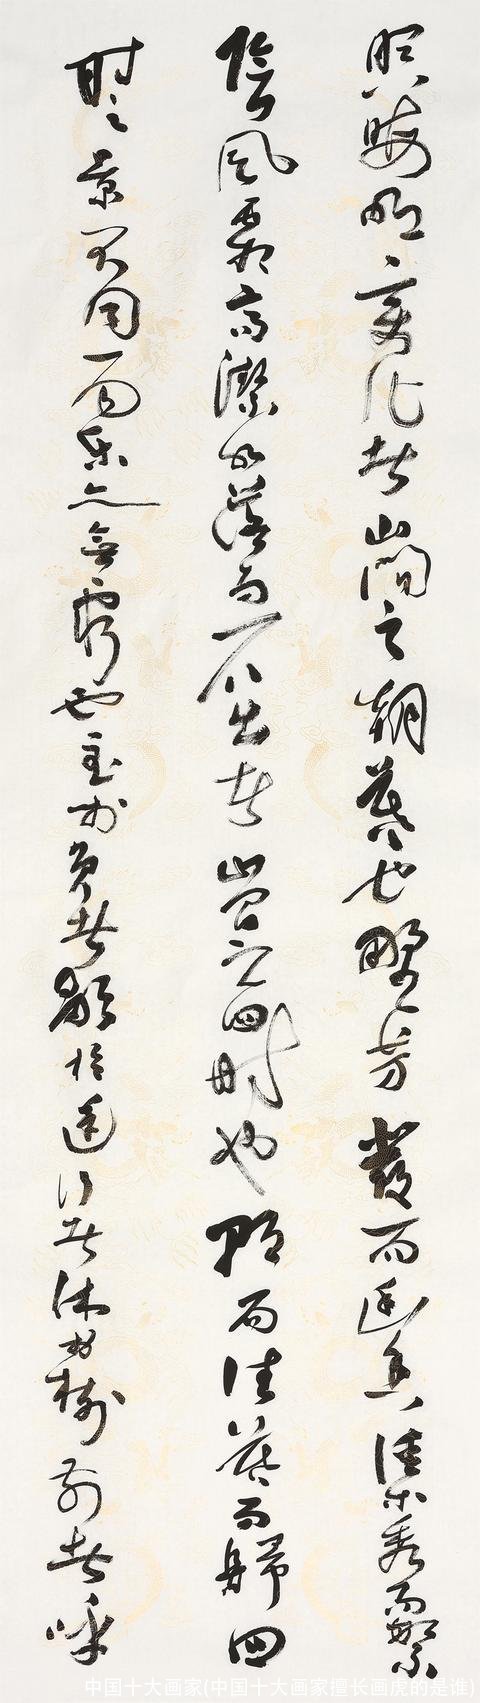 暝晦明變化者山間之朝暮也野芳發而幽香佳木秀而繁
陰風霜高潔水落而石出者山間之四時也朝而往暮而歸四
時之景不同而樂亦無窮也至於負者歌於途行者休於樹前者呼
中国十大画家(中国十大画家擅长画虎的是谁)